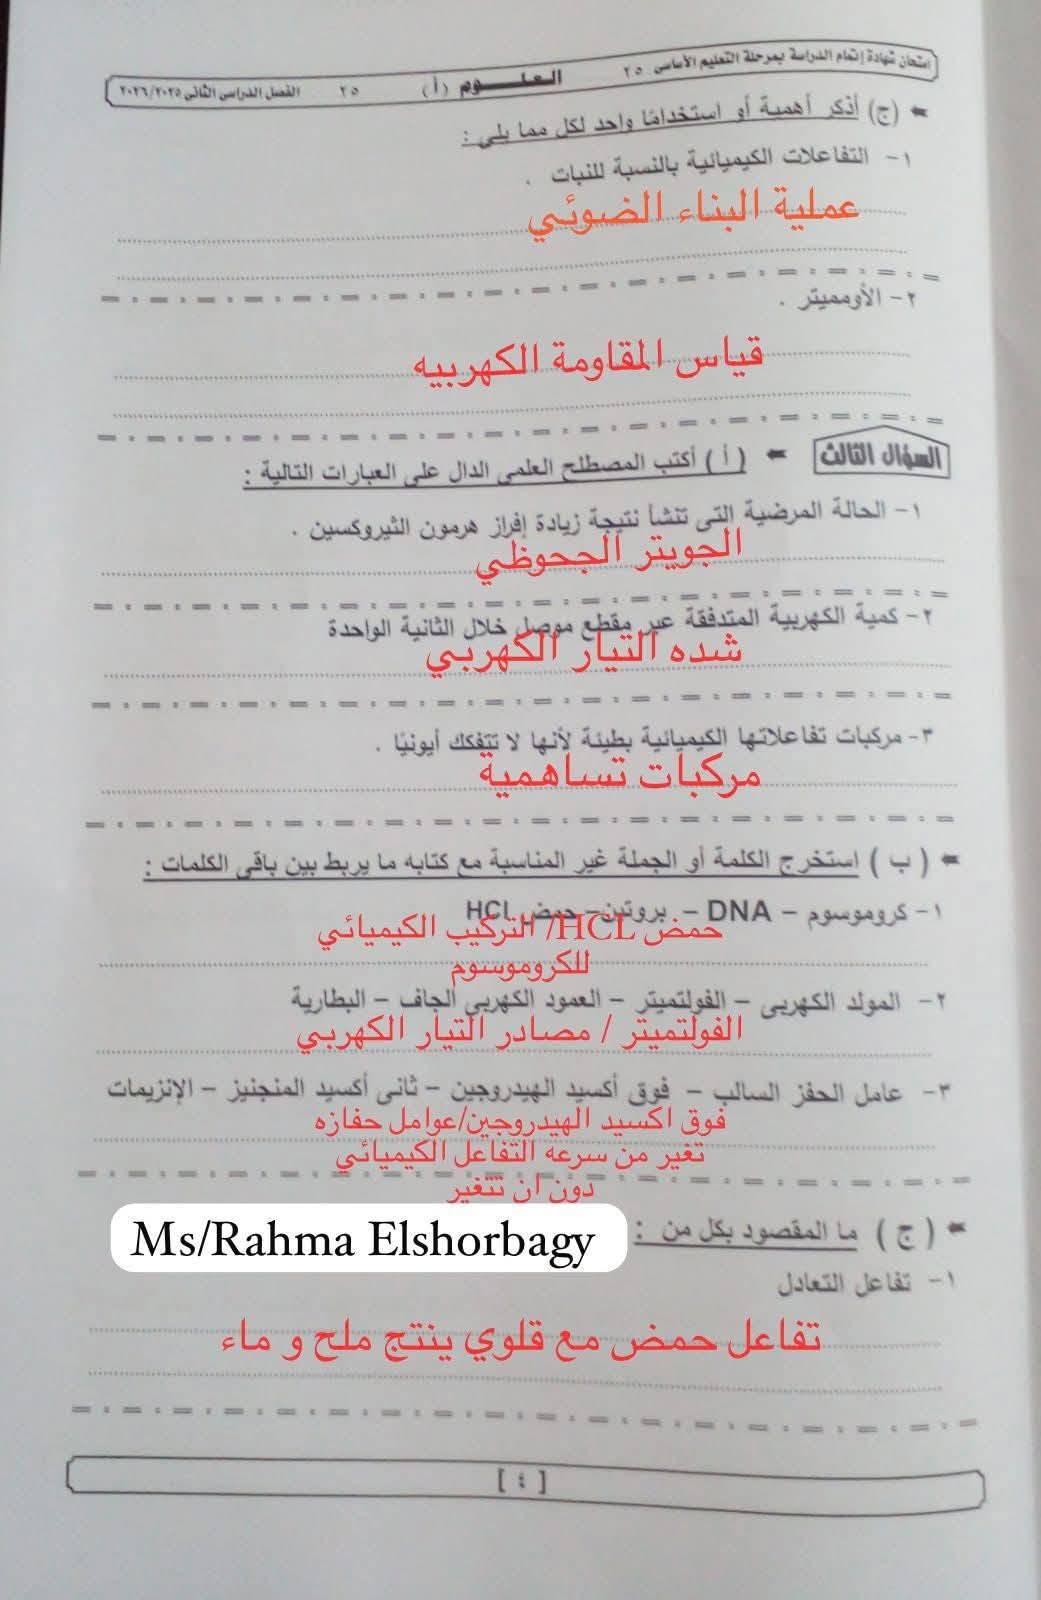 امتحان شهادة إتمام الدراسة بمرحلة التعليم الأساسى ٢٥ العلــــوم (أ) ٢٥ الفصل الدراسى الثانى ٢٠٢٦/٢٠٢٥
(ج) أذكر أهمية أو استخدامًا واحد لكل مما يلى :
١- التفاعلات الكيميائية بالنسبة للنبات .
عملية البناء الضوئي
٢- الأوميتر .
قياس المقاومة الكهربيه
السؤال الثالث (أ) أكتب المصطلح العلمى الدال على العبارات التالية :
١- الحالة المرضية التى تنشأ نتيجة زيادة إفراز هرمون الثيروكسين .
الجويتر الجحوظي
٢- كمية الكهربية المتدفقة عبر مقطع موصل خلال الثانية الواحدة
شده التيار الكهربي
٣- مركبات تفاعلاتها الكيميائية بطيئة لأنها لا تتفكك أيونيًا .
مركبات تساهمية
(ب) استخرج الكلمة أو الجملة غير المناسبة مع كتابه ما يربط بين باقى الكلمات :
١- كروموسوم – DNA – بروتين – حمض HCl
حمض HCL/ التركيب الكيميائي
للكروموسوم
٢- المولد الكهربى – الفولتميتر – العمود الكهربى الجاف – البطارية
الفولتميتر / مصادر التيار الكهربي
٣- عامل الحفز السالب – فوق أكسيد الهيدروجين – ثانى أكسيد المنجنيز – الإنزيمات
فوق اكسيد الهيدروجين/عوامل حفازه
تغير من سرعه التفاعل الكيميائي
دون ان تتغير
(ج) ما المقصود بكل من :
Ms/Rahma Elshorbagy
١- تفاعل التعادل
تفاعل حمض مع قلوي ينتج ملح و ماء
[ ٤ ]